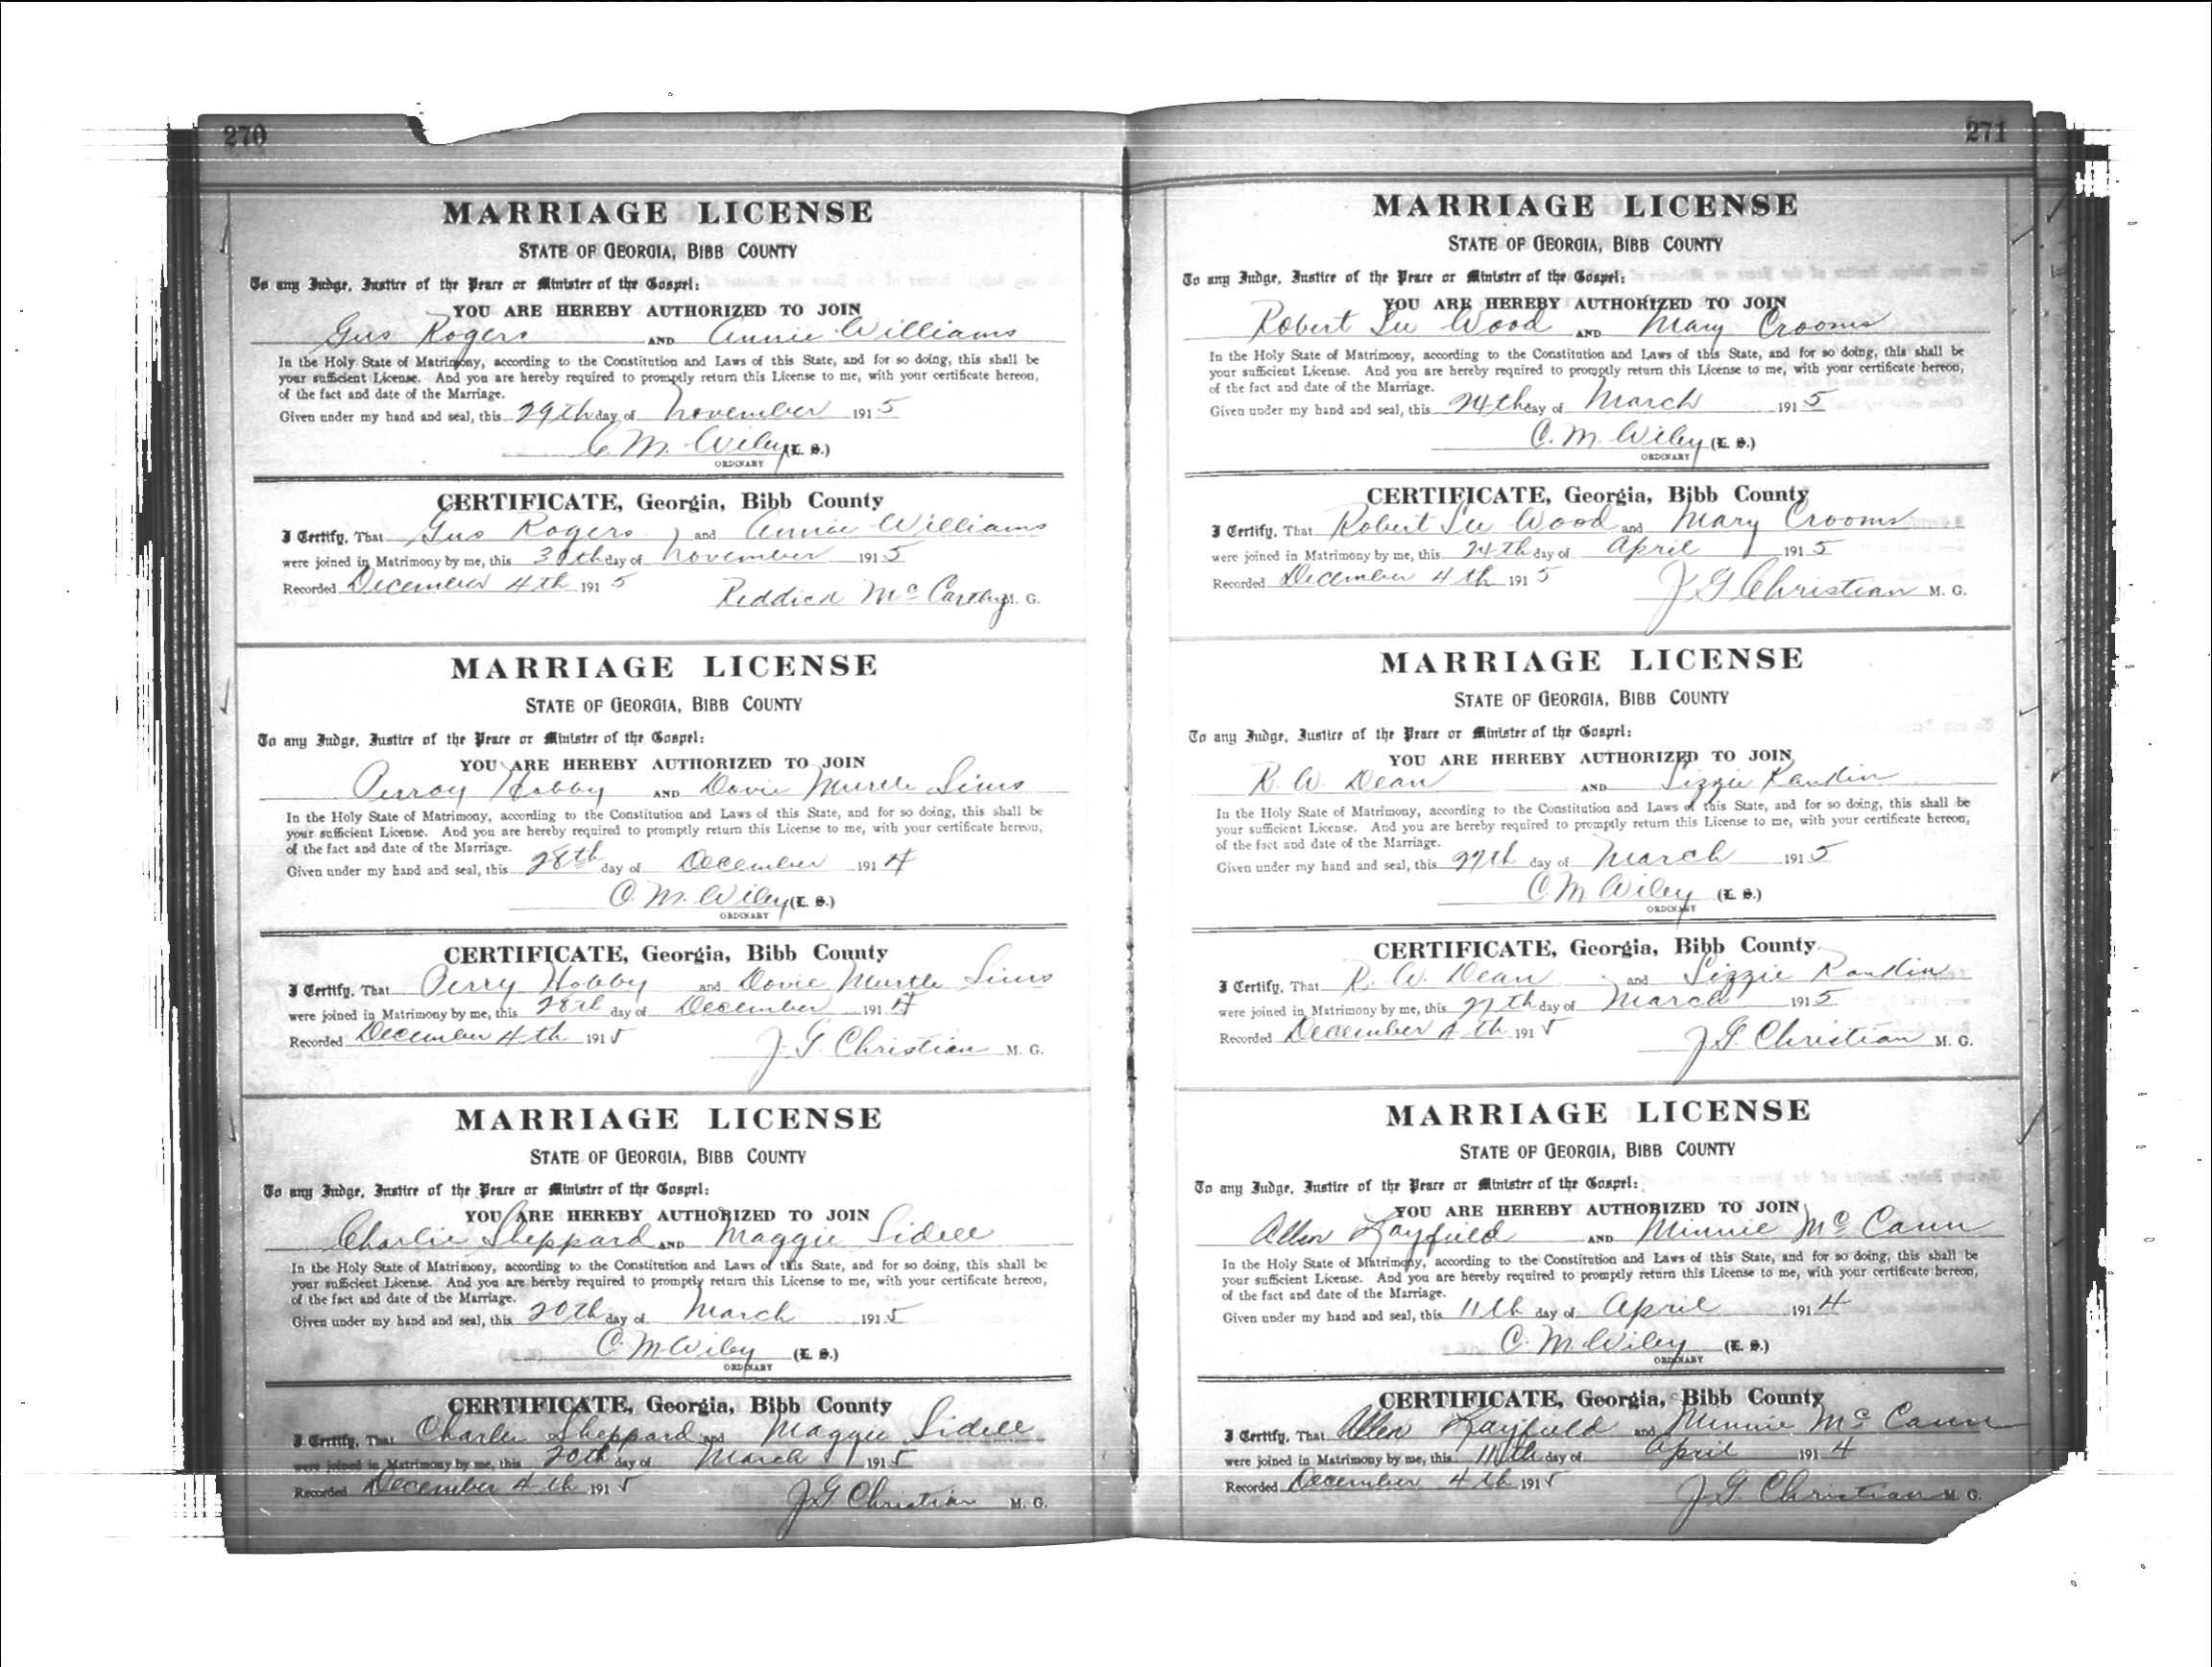 270
MARRIAGE LICENSE
STATE OF GEORGIA, BIBB COUNTY
To any Judge, Justice of the Peace or Minister of the Gospel:
YOU ARE HEREBY AUTHORIZED TO JOIN
Gus Rogers AND Annie Williams
In the Holy State of Matrimony, according to the Constitution and Laws of this State, and for so doing, this shall be
your sufficient License. And you are hereby required to promptly return this License to me, with your certificate hereon,
of the fact and date of the Marriage.
Given under my hand and seal, this 29th day of November 1915
C. M. Wiley (L. S.)
ORDINARY
CERTIFICATE, Georgia, Bibb County
I Certify, That Gus Rogers and Annie Williams
were joined in Matrimony by me, this 30th day of November 1915
Recorded December 4th 1915 Reddick McCarthy M. G.
MARRIAGE LICENSE
STATE OF GEORGIA, BIBB COUNTY
To any Judge, Justice of the Peace or Minister of the Gospel:
YOU ARE HEREBY AUTHORIZED TO JOIN
Perray Hobby AND Dovie Murtle Sims
In the Holy State of Matrimony, according to the Constitution and Laws of this State, and for so doing, this shall be
your sufficient License. And you are hereby required to promptly return this License to me, with your certificate hereon,
of the fact and date of the Marriage.
Given under my hand and seal, this 28th day of December 1914
C. M. Wiley (L. S.)
ORDINARY
CERTIFICATE, Georgia, Bibb County
I Certify, That Perry Hobby and Dovie Murtle Sims
were joined in Matrimony by me, this 28th day of December 1914
Recorded December 4th 1915 J. G. Christian M. G.
MARRIAGE LICENSE
STATE OF GEORGIA, BIBB COUNTY
To any Judge, Justice of the Peace or Minister of the Gospel:
YOU ARE HEREBY AUTHORIZED TO JOIN
Charlie Sheppard AND Maggie Sidell
In the Holy State of Matrimony, according to the Constitution and Laws of this State, and for so doing, this shall be
your sufficient License. And you are hereby required to promptly return this License to me, with your certificate hereon,
of the fact and date of the Marriage.
Given under my hand and seal, this 20th day of March 1915
C. M Wiley (L. S.)
ORDINARY
CERTIFICATE, Georgia, Bibb County
I Certify, That Charlie Sheppard and Maggie Sidell
were joined in Matrimony by me, this 20th day of March 1915
Recorded December 4th 1915 J G Christian M. G.
271
MARRIAGE LICENSE
STATE OF GEORGIA, BIBB COUNTY
To any Judge, Justice of the Peace or Minister of the Gospel:
YOU ARE HEREBY AUTHORIZED TO JOIN
Robert Lee Wood AND Mary Crooms
In the Holy State of Matrimony, according to the Constitution and Laws of this State, and for so doing, this shall be
your sufficient License. And you are hereby required to promptly return this License to me, with your certificate hereon,
of the fact and date of the Marriage.
Given under my hand and seal, this 24th day of March 1915
C. M. Wiley (L. S.)
ORDINARY
CERTIFICATE, Georgia, Bibb County
I Certify, That Robert Lee Wood and Mary Crooms
were joined in Matrimony by me, this 24th day of April 1915
Recorded December 4th 1915 J G Christian M. G.
MARRIAGE LICENSE
STATE OF GEORGIA, BIBB COUNTY
To any Judge, Justice of the Peace or Minister of the Gospel:
YOU ARE HEREBY AUTHORIZED TO JOIN
R. W. Dean AND Lizzie Rankin
In the Holy State of Matrimony, according to the Constitution and Laws of this State, and for so doing, this shall be
your sufficient License. And you are hereby required to promptly return this License to me, with your certificate hereon,
of the fact and date of the Marriage.
Given under my hand and seal, this 27th day of March 1915
C M Wiley (L. S.)
ORDINARY
CERTIFICATE, Georgia, Bibb County
I Certify, That R. W. Dean and Lizzie Rankin
were joined in Matrimony by me, this 27th day of March 1915
Recorded December 4th 1915 J. G. Christian M. G.
MARRIAGE LICENSE
STATE OF GEORGIA, BIBB COUNTY
To any Judge, Justice of the Peace or Minister of the Gospel:
YOU ARE HEREBY AUTHORIZED TO JOIN
Allen Rayfield AND Minnie McCann
In the Holy State of Matrimony, according to the Constitution and Laws of this State, and for so doing, this shall be
your sufficient License. And you are hereby required to promptly return this License to me, with your certificate hereon,
of the fact and date of the Marriage.
Given under my hand and seal, this 11th day of April 1914
C. M. Wiley (L. S.)
ORDINARY
CERTIFICATE, Georgia, Bibb County
I Certify, That Allen Rayfield and Minnie McCann
were joined in Matrimony by me, this 11th day of April 1914
Recorded December 4th 1915 J. G. Christian M. G.